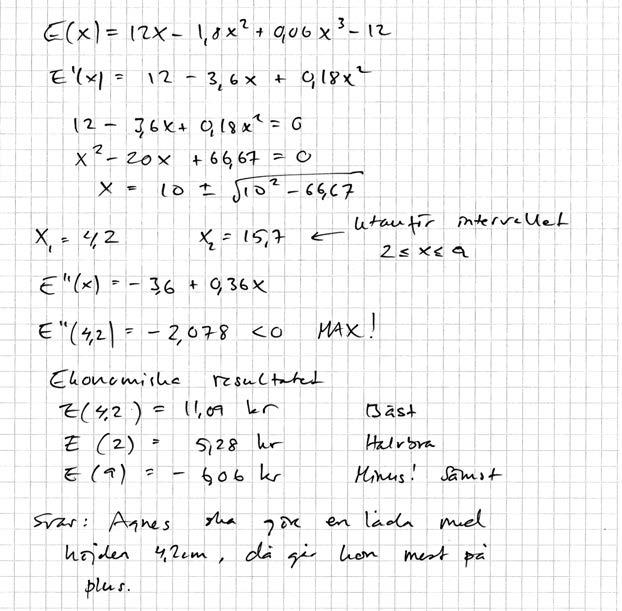 E(x) = 12x - 1,8x² + 0,06x³ - 12
E'(x) = 12 - 3,6x + 0,18x²
12 - 3,6x + 0,18x² = 0
x² - 20x + 66,67 = 0
x = 10 ± √(10² - 66,67)
x₁ = 4,2 x₂ = 15,7 ← utanför intervallet
2 ≤ x ≤ 9
E''(x) = - 3,6 + 0,36x
E''(4,2) = - 2,078 < 0 MAX!
Ekonomiska resultatet
E(4,2) = 11,09 kr Bäst
E (2) = 5,28 kr Halvbra
E (9) = - 6,06 kr Minus! Sämst
Svar: Agnes ska göra en låda med
höjden 4,2cm, då går hon mest på
plus.